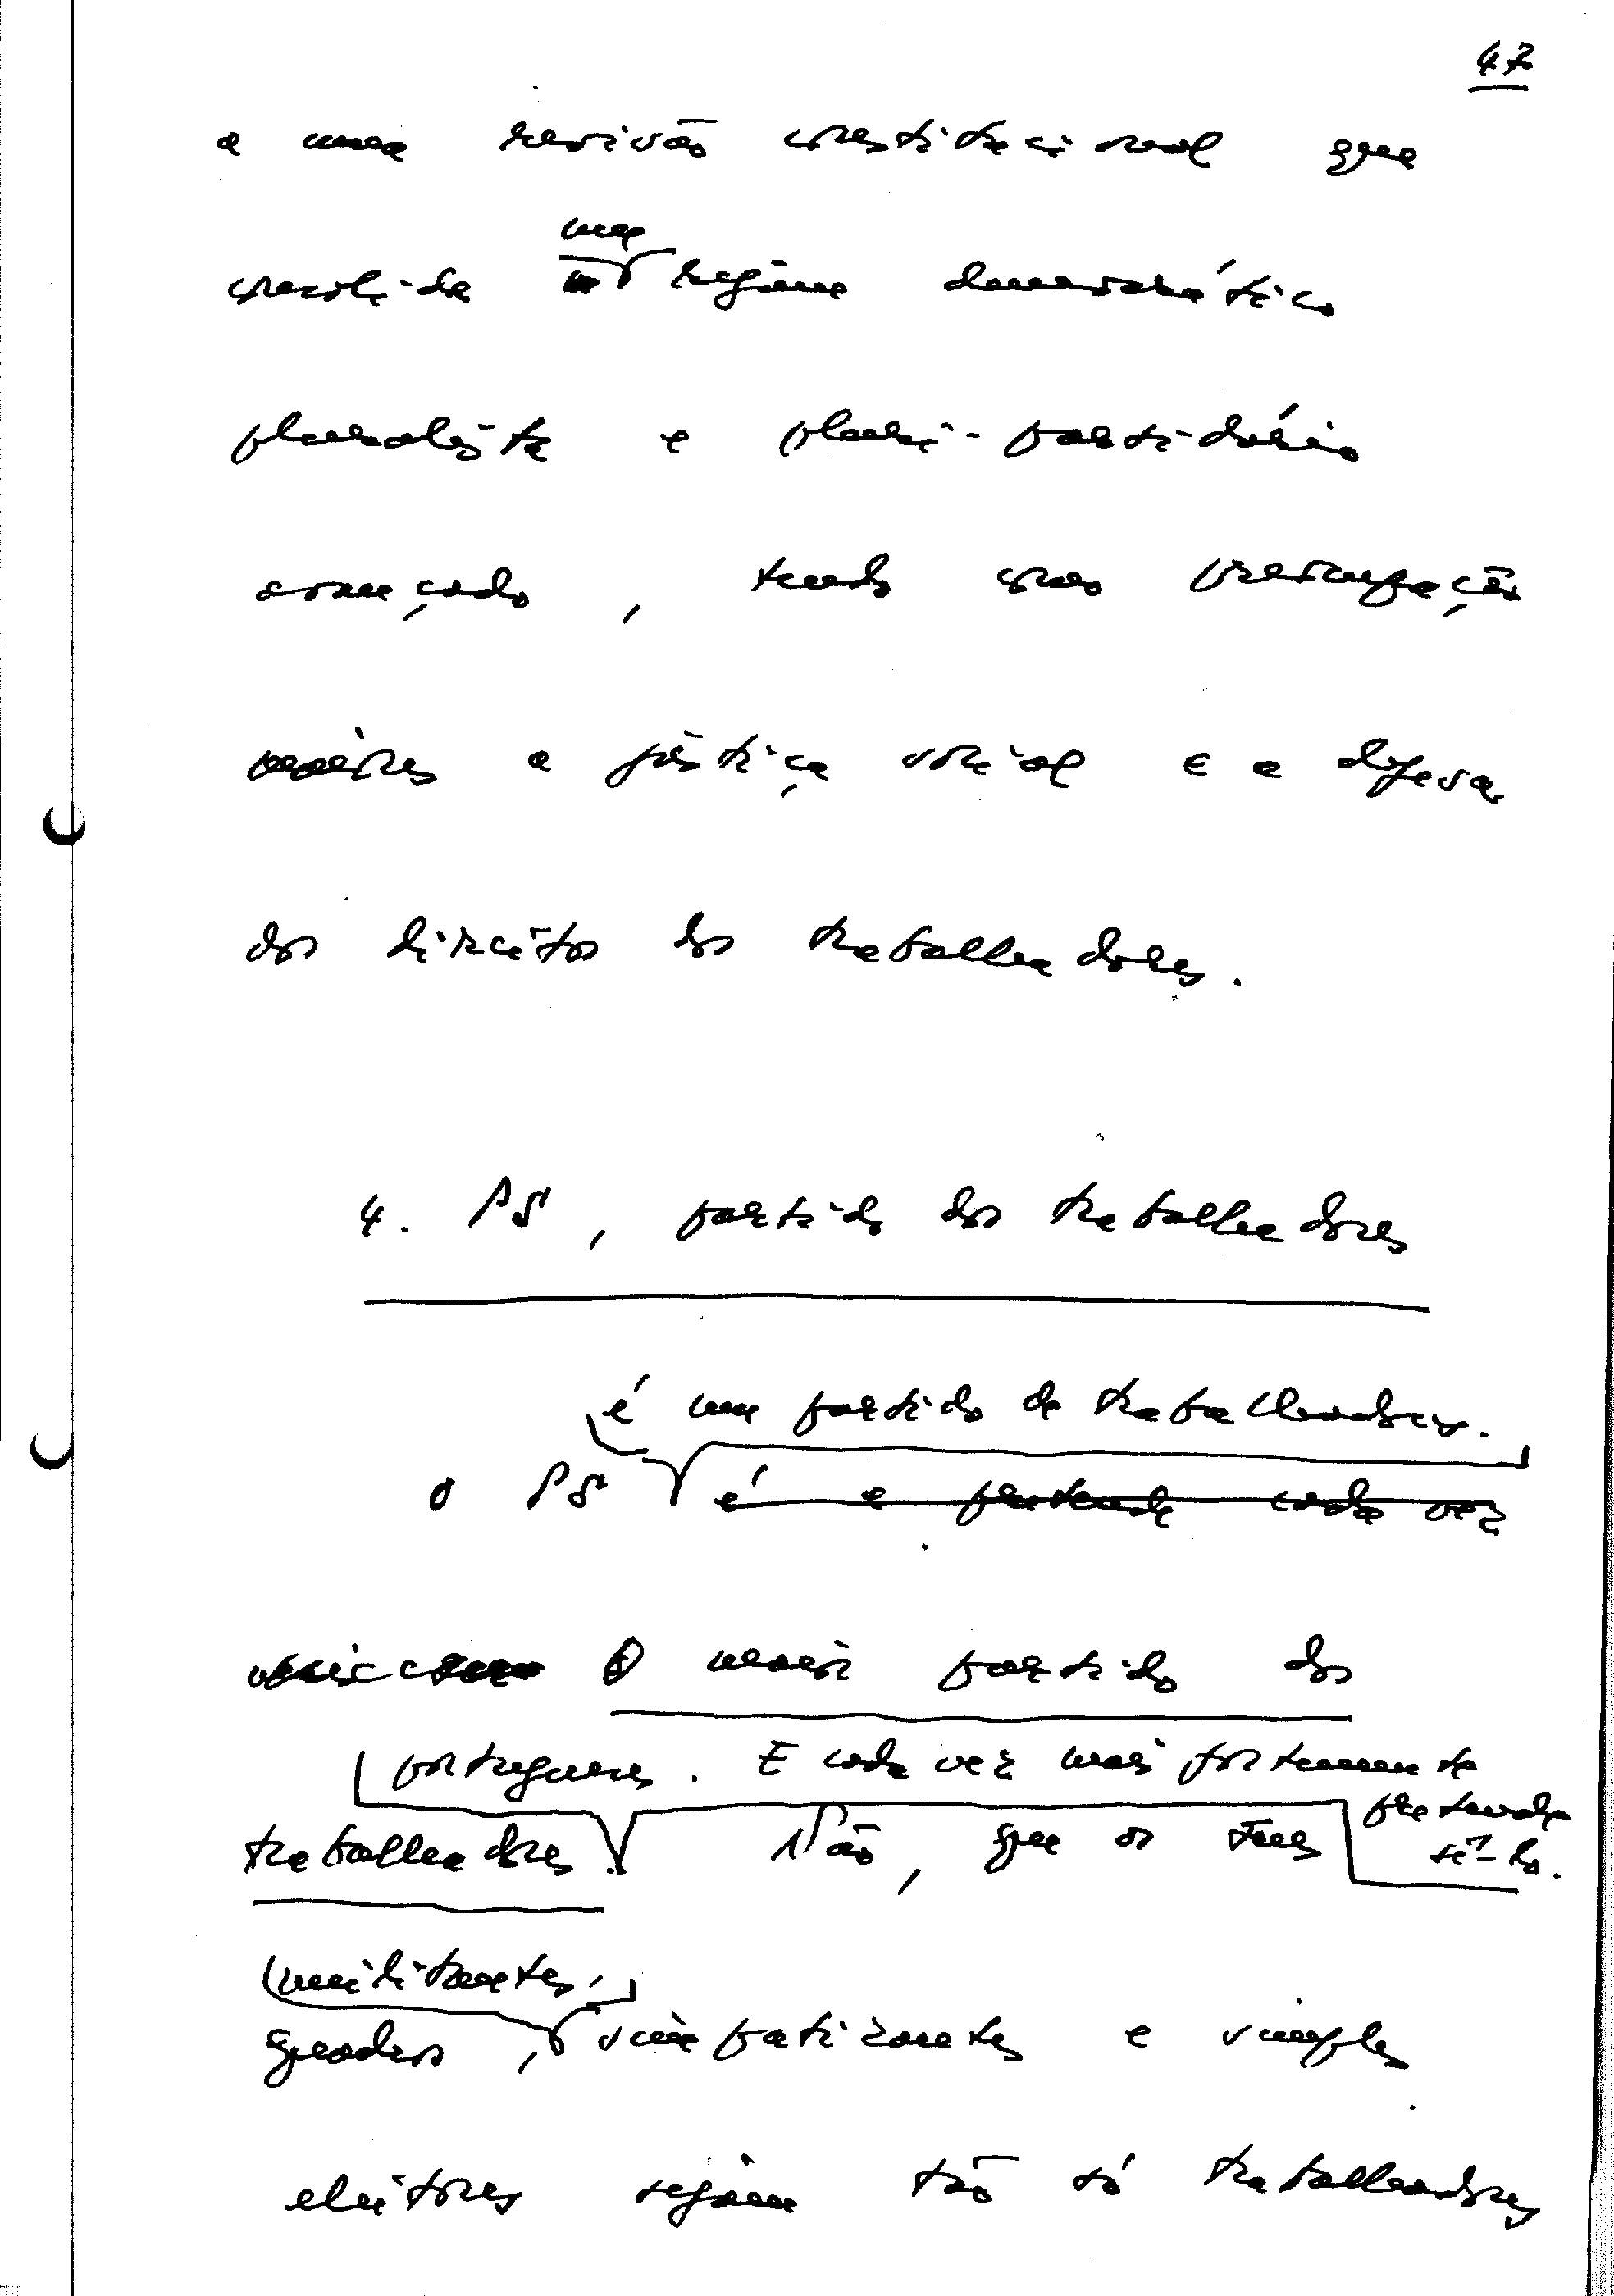 47
a uma revisão constitucional que
um
consolide o regime democrático
pluralista e pluri-partidário
avançado, tendo como preocupações
maiores a justiça social e a defesa
dos direitos dos trabalhadores.
4. PS, partido dos trabalhadores
é um partido de trabalhadores.
O PS é e pretende cada vez
O maior partido dos
portugueses. E cada vez mais fortemente
pretende
trabalhadores. Não, que os seus sê-lo.
militantes,
quadros, simpatizantes e simples
eleitores sejam tão só trabalhadores